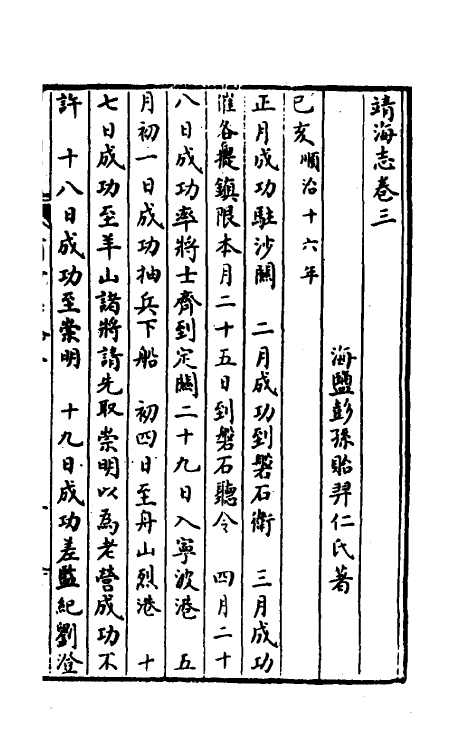 靖海志卷三
海鹽彭孫貽羿仁氏著
己亥順治十六年
正月成功駐沙關　二月成功到磐石衛　三月成功
催各提鎮限本月二十五日到磐石聽令　四月二十
八日成功率將士齊到定關二十九日入寧波港　五
月初一日成功抽兵下船　初四日至舟山烈港　十
七日成功至羊山諸將請先取崇明以爲老營成功不
許　十八日成功至崇明　十九日成功差監紀劉澄